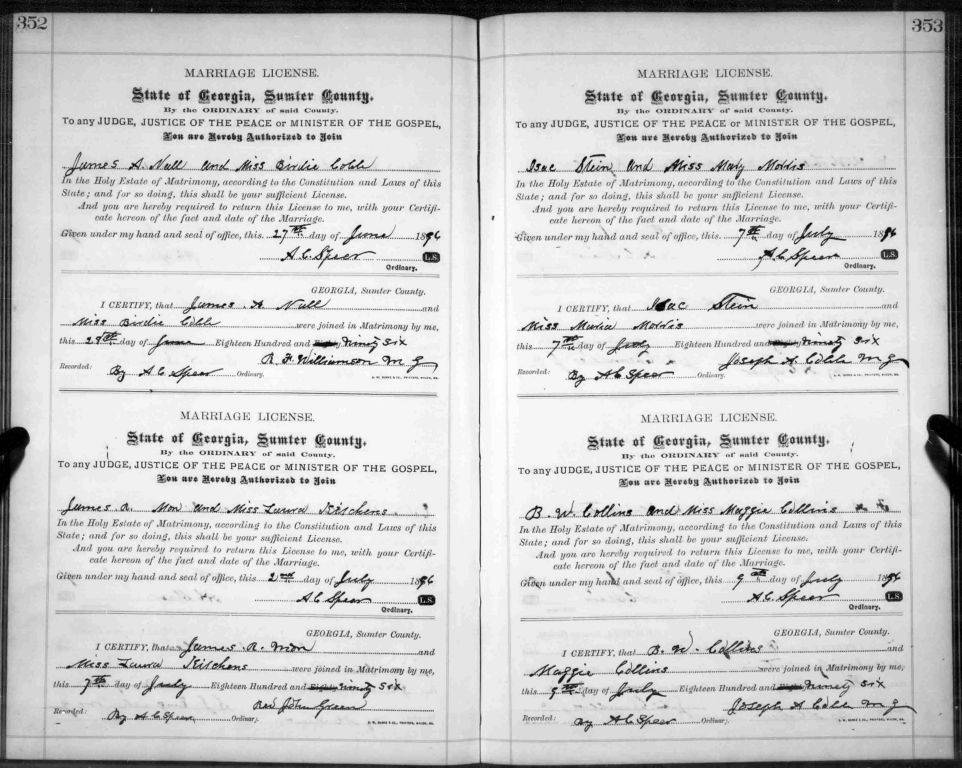 352
MARRIAGE LICENSE.
State of Georgia, Sumter County.
By the ORDINARY of said County.
To any JUDGE, JUSTICE OF THE PEACE or MINISTER OF THE GOSPEL,
You are Hereby Authorized to Join
James A. Null and Miss Birdie Cobb
In the Holy Estate of Matrimony, according to the Constitution and Laws of this
State; and for so doing, this shall be your sufficient License.
And you are hereby required to return this License to me, with your Certifi-
cate hereon of the fact and date of the Marriage.
Given under my hand and seal of office, this 27th day of June 1896
A. C. Speer L.S.
Ordinary.
GEORGIA, Sumter County.
I CERTIFY, that James A. Null and
Miss Birdie Cobb were joined in Matrimony by me,
this 28th day of June Eighteen Hundred and Ninety Six
R. F. Williamson M G
Recorded: By A C Speer Ordinary.
MARRIAGE LICENSE.
State of Georgia, Sumter County.
By the ORDINARY of said County.
To any JUDGE, JUSTICE OF THE PEACE or MINISTER OF THE GOSPEL,
You are Hereby Authorized to Join
James R. Mon and Miss Laura Kitchens
In the Holy Estate of Matrimony, according to the Constitution and Laws of this
State; and for so doing, this shall be your sufficient License.
And you are hereby required to return this License to me, with your Certifi-
cate hereon of the fact and date of the Marriage.
Given under my hand and seal of office, this 2nd day of July 1896
A. C. Speer L.S.
Ordinary.
GEORGIA, Sumter County.
I CERTIFY, that James R. Mon and
Miss Laura Kitchens were joined in Matrimony by me,
this 7th day of July Eighteen Hundred and Ninety Six
Rev John Green
Recorded: By A C Speer Ordinary.
353
MARRIAGE LICENSE.
State of Georgia, Sumter County.
By the ORDINARY of said County.
To any JUDGE, JUSTICE OF THE PEACE or MINISTER OF THE GOSPEL,
You are Hereby Authorized to Join
Isac Stein and Miss Mary Morris
In the Holy Estate of Matrimony, according to the Constitution and Laws of this
State; and for so doing, this shall be your sufficient License.
And you are hereby required to return this License to me, with your Certifi-
cate hereon of the fact and date of the Marriage.
Given under my hand and seal of office, this 7th day of July 1896
A. C. Speer L.S.
Ordinary.
GEORGIA, Sumter County.
I CERTIFY, that Isac Stein and
Miss Morris were joined in Matrimony by me,
this 7th day of July Eighteen Hundred and Ninety Six
Joseph A. Cobb M G
Recorded: By A C Speer Ordinary.
MARRIAGE LICENSE.
State of Georgia, Sumter County.
By the ORDINARY of said County.
To any JUDGE, JUSTICE OF THE PEACE or MINISTER OF THE GOSPEL,
You are Hereby Authorized to Join
B. W. Collins and Miss Maggie Collins
In the Holy Estate of Matrimony, according to the Constitution and Laws of this
State; and for so doing, this shall be your sufficient License.
And you are hereby required to return this License to me, with your Certifi-
cate hereon of the fact and date of the Marriage.
Given under my hand and seal of office, this 9th day of July 1896
A. C. Speer L.S.
Ordinary.
GEORGIA, Sumter County.
I CERTIFY, that B. W. Collins and
Maggie Collins were joined in Matrimony by me,
this 9th day of July Eighteen Hundred and Ninety Six
Joseph A Cobb M G
Recorded: By A C Speer Ordinary.